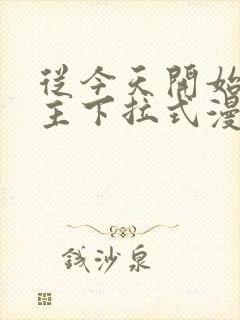 從今天開始
主下拉式漫
錢沙泉